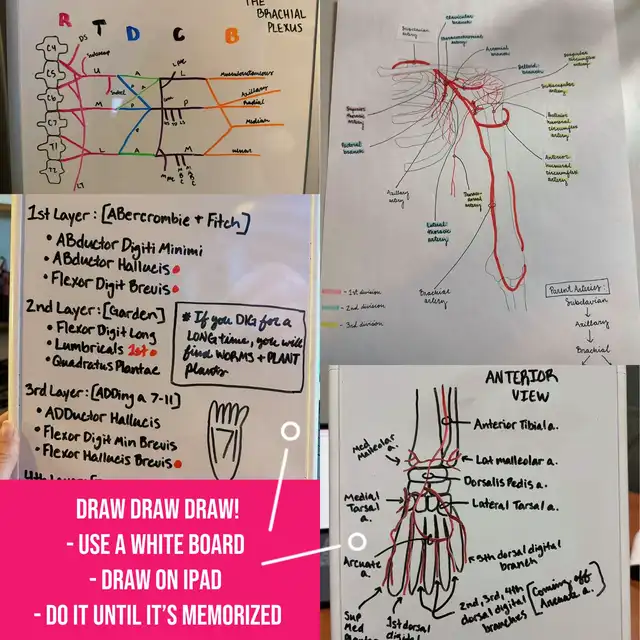 THE
BRACHIAL
PLEXUS
R T D C B
C4
C5
C6
C7
T1
T2
DS
LT
U
M
L
A
P
A
A
L
P
M
Musculocutaneous
Axillary
Radial
Median
ulnar
Subclavian
artery
Clavicular
branch
Thoracoacromial
artery
Acromial
branch
Deltoid
branch
Subscapular
artery
Superior
thoracic
artery
Pectoral
branch
Posterior
humeral
circumflex
artery
Anterior
humeral
circumflex
artery
Axillary
artery
Lateral
thoracic
artery
Thoraco
dorsal
artery
Brachial
artery
- 1st division
- 2nd division
- 3rd division
Parent Arteries:
Subclavian
Axillary
Brachial
1st Layer: [ABercrombie + Fitch]
• ABductor Digiti Minimi
• ABductor Hallucis
• Flexor Digit Brevis
2nd Layer: [Garden]
• Flexor Digit Long
• Lumbricals 1st
• Quadratus Plantae
* If you DIG for a
LONG time, you will
find WORMS + PLANT
plants
3rd Layer: [ADDing a 7-11]
• ADDuctor Hallucis
• Flexor Digit Min Brevis
• Flexor Hallucis Brevis
7
ANTERIOR
VIEW
Anterior Tibial a.
Med
Malleolar
a.
Lat malleolar a.
Dorsalis Pedis a.
Medial
Tarsal
a.
Lateral Tarsal a.
Arcuate
a.
5th dorsal digital
branch
2nd, 3rd, 4th
dorsal digital
branches
[Coming off
Arcuate a.]
Sup
Med
1st dorsal
digital
DRAW DRAW DRAW!
- USE A WHITE BOARD
- DRAW ON IPAD
- DO IT UNTIL IT'S MEMORIZED